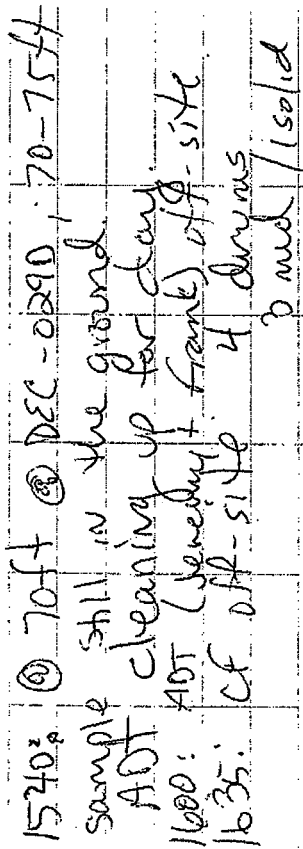 1540: @ 70ft @ DEC-029D, 70-75ft
sample still in the ground.
ADT cleaning up for day.
1600: ADT + Frank) off-site
1635: CF off-site 4 drums
3 mud / 1 solid